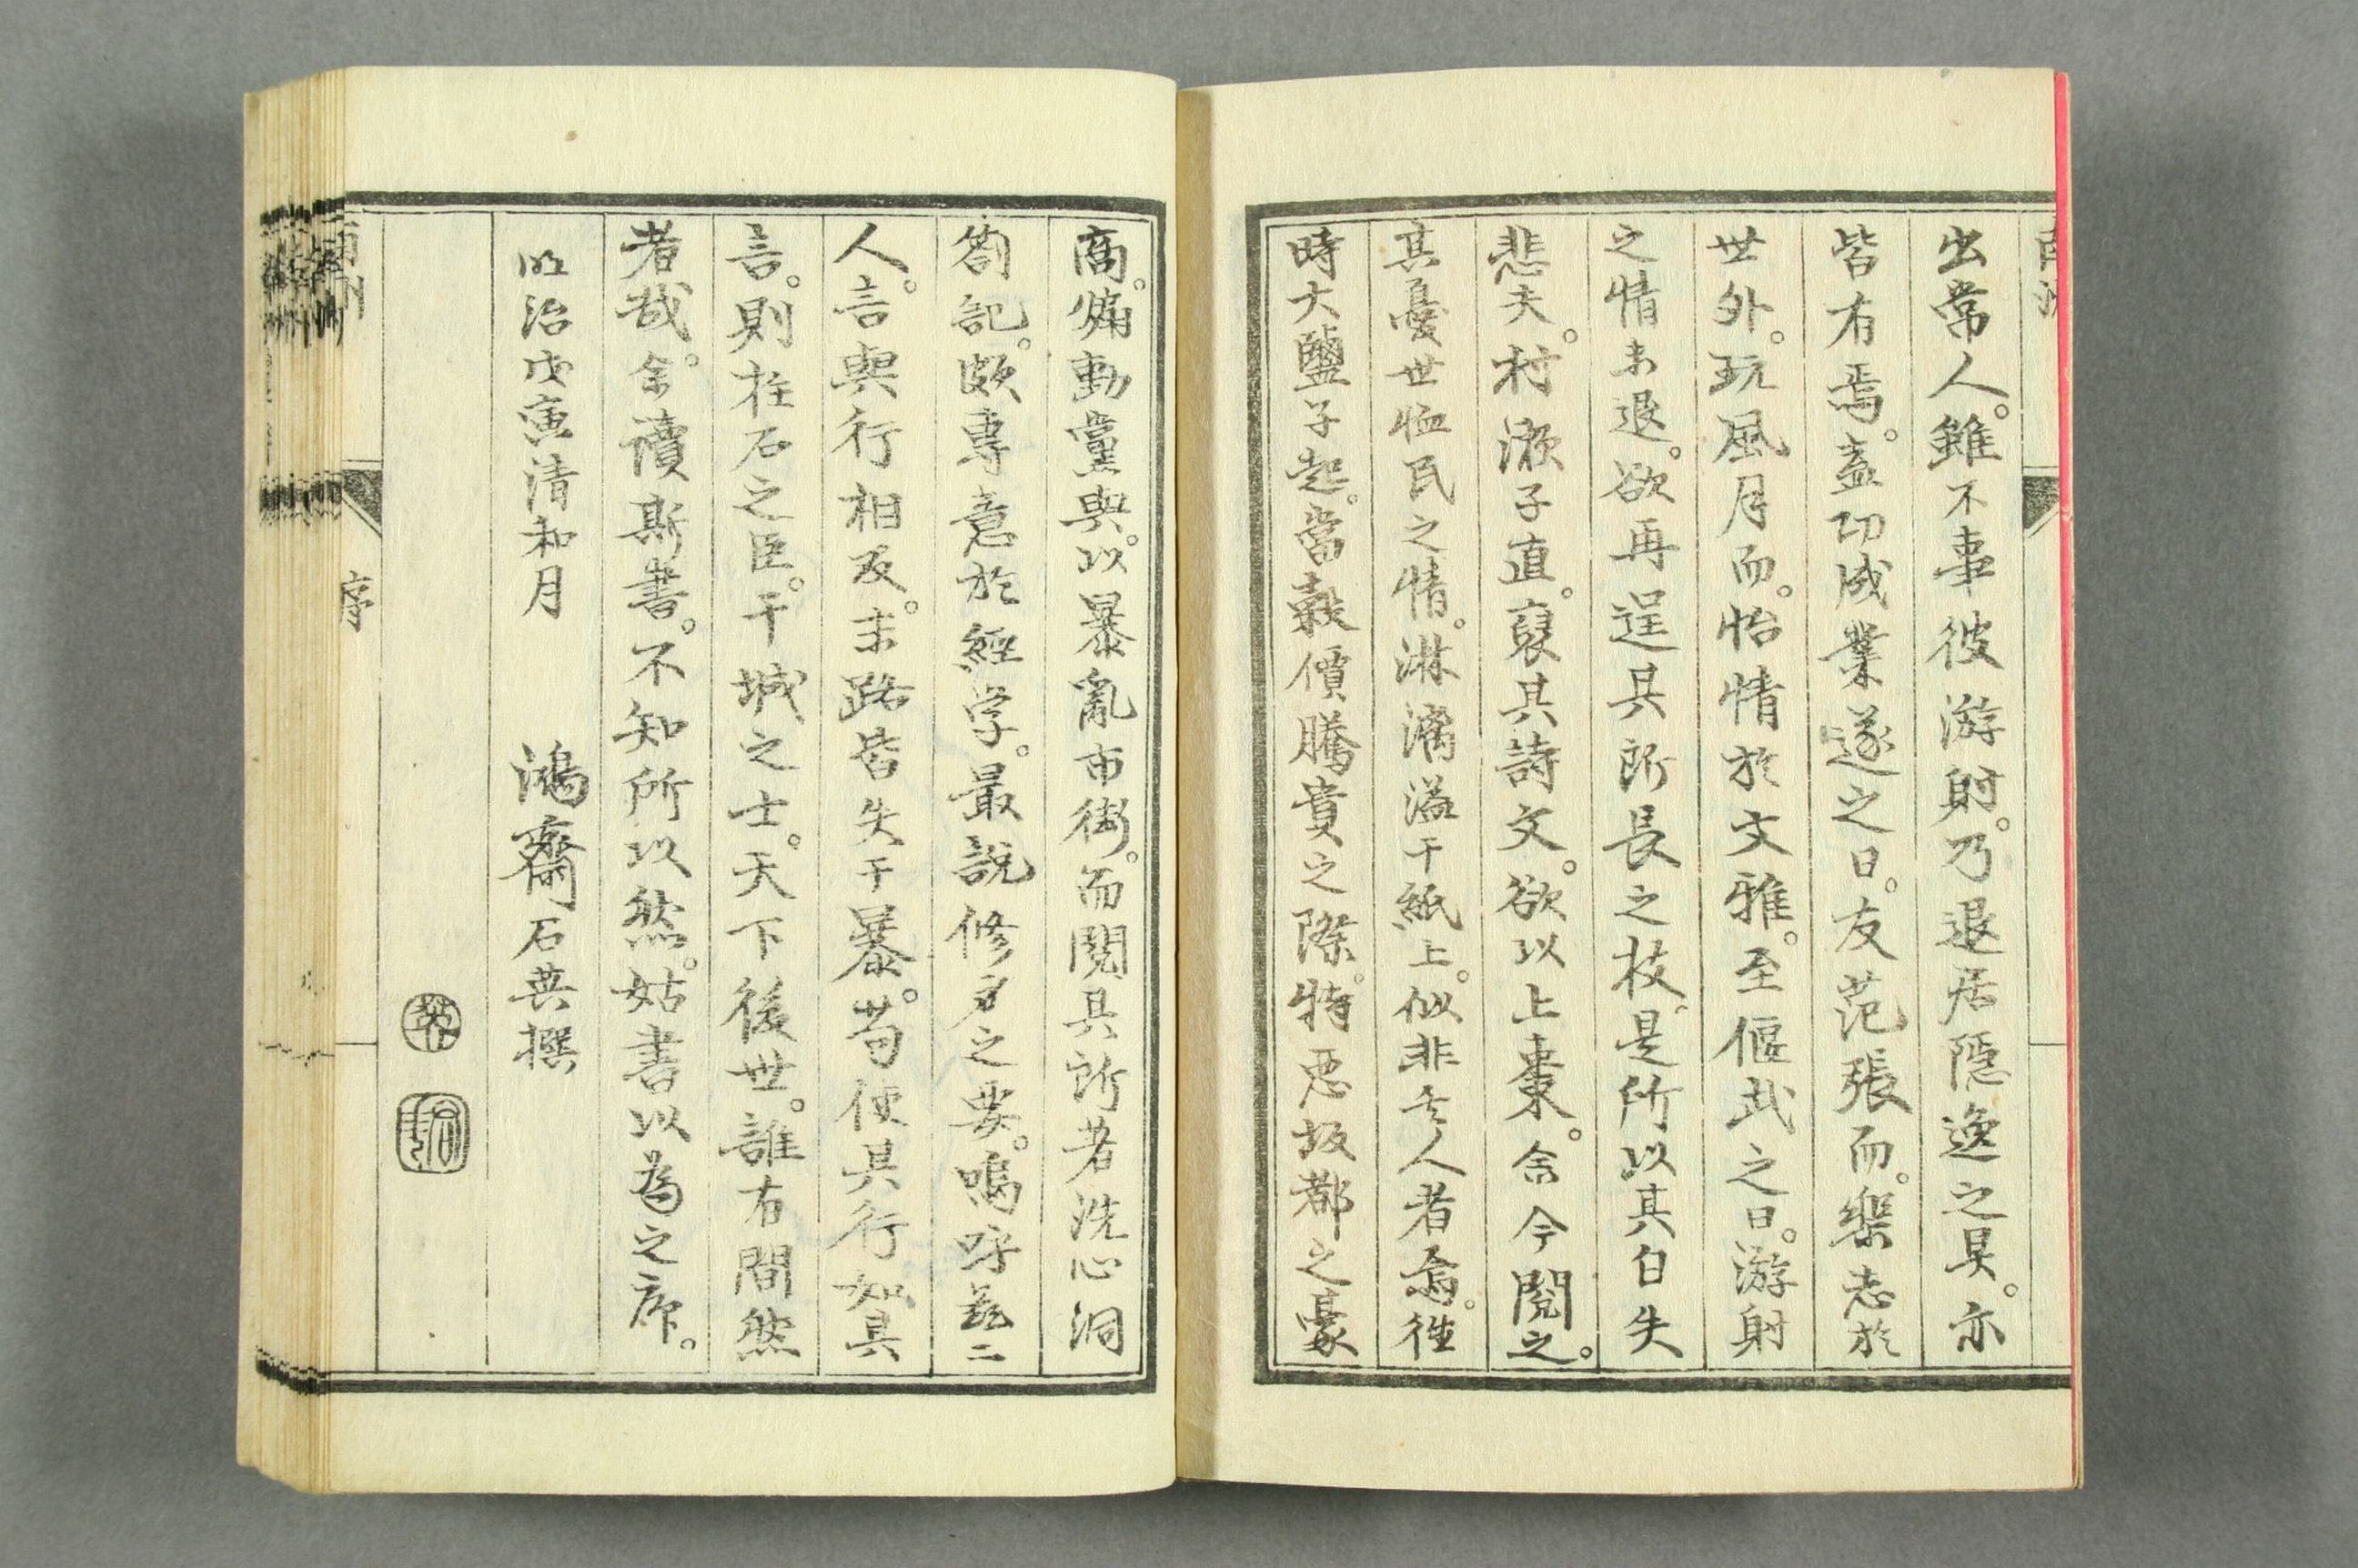 出常人。雖不事彼游射。乃退居隱逸之具。亦
皆有焉。蓋功成業遂之日。友范張而。樂志於
世外。玩風月而。怡情於文雅。至偃武之日。游射
之情未退。欲再逞其所長之技。是所以其自失
悲夫。村瀨子直。裒其詩文。欲以上棗。余今閱之。
其憂世恤民之情。淋漓溢于紙上。似非其人者焉。往
時大鹽子起。當穀價騰貴之際。特惡坂都之豪
商。煽動黨與。以暴亂市街。而閱其所著洗心洞
劄記。頗專意於經学。最說修身之要。嗚呼茲二
人。言與行相反。末路皆失于暴。苟使其行如其
言。則柱石之臣。干城之士。天下後世。誰有間然
者哉。余讀斯書。不知所以然。姑書以為之序。
明治戊寅清和月
鴻齋石英撰
序